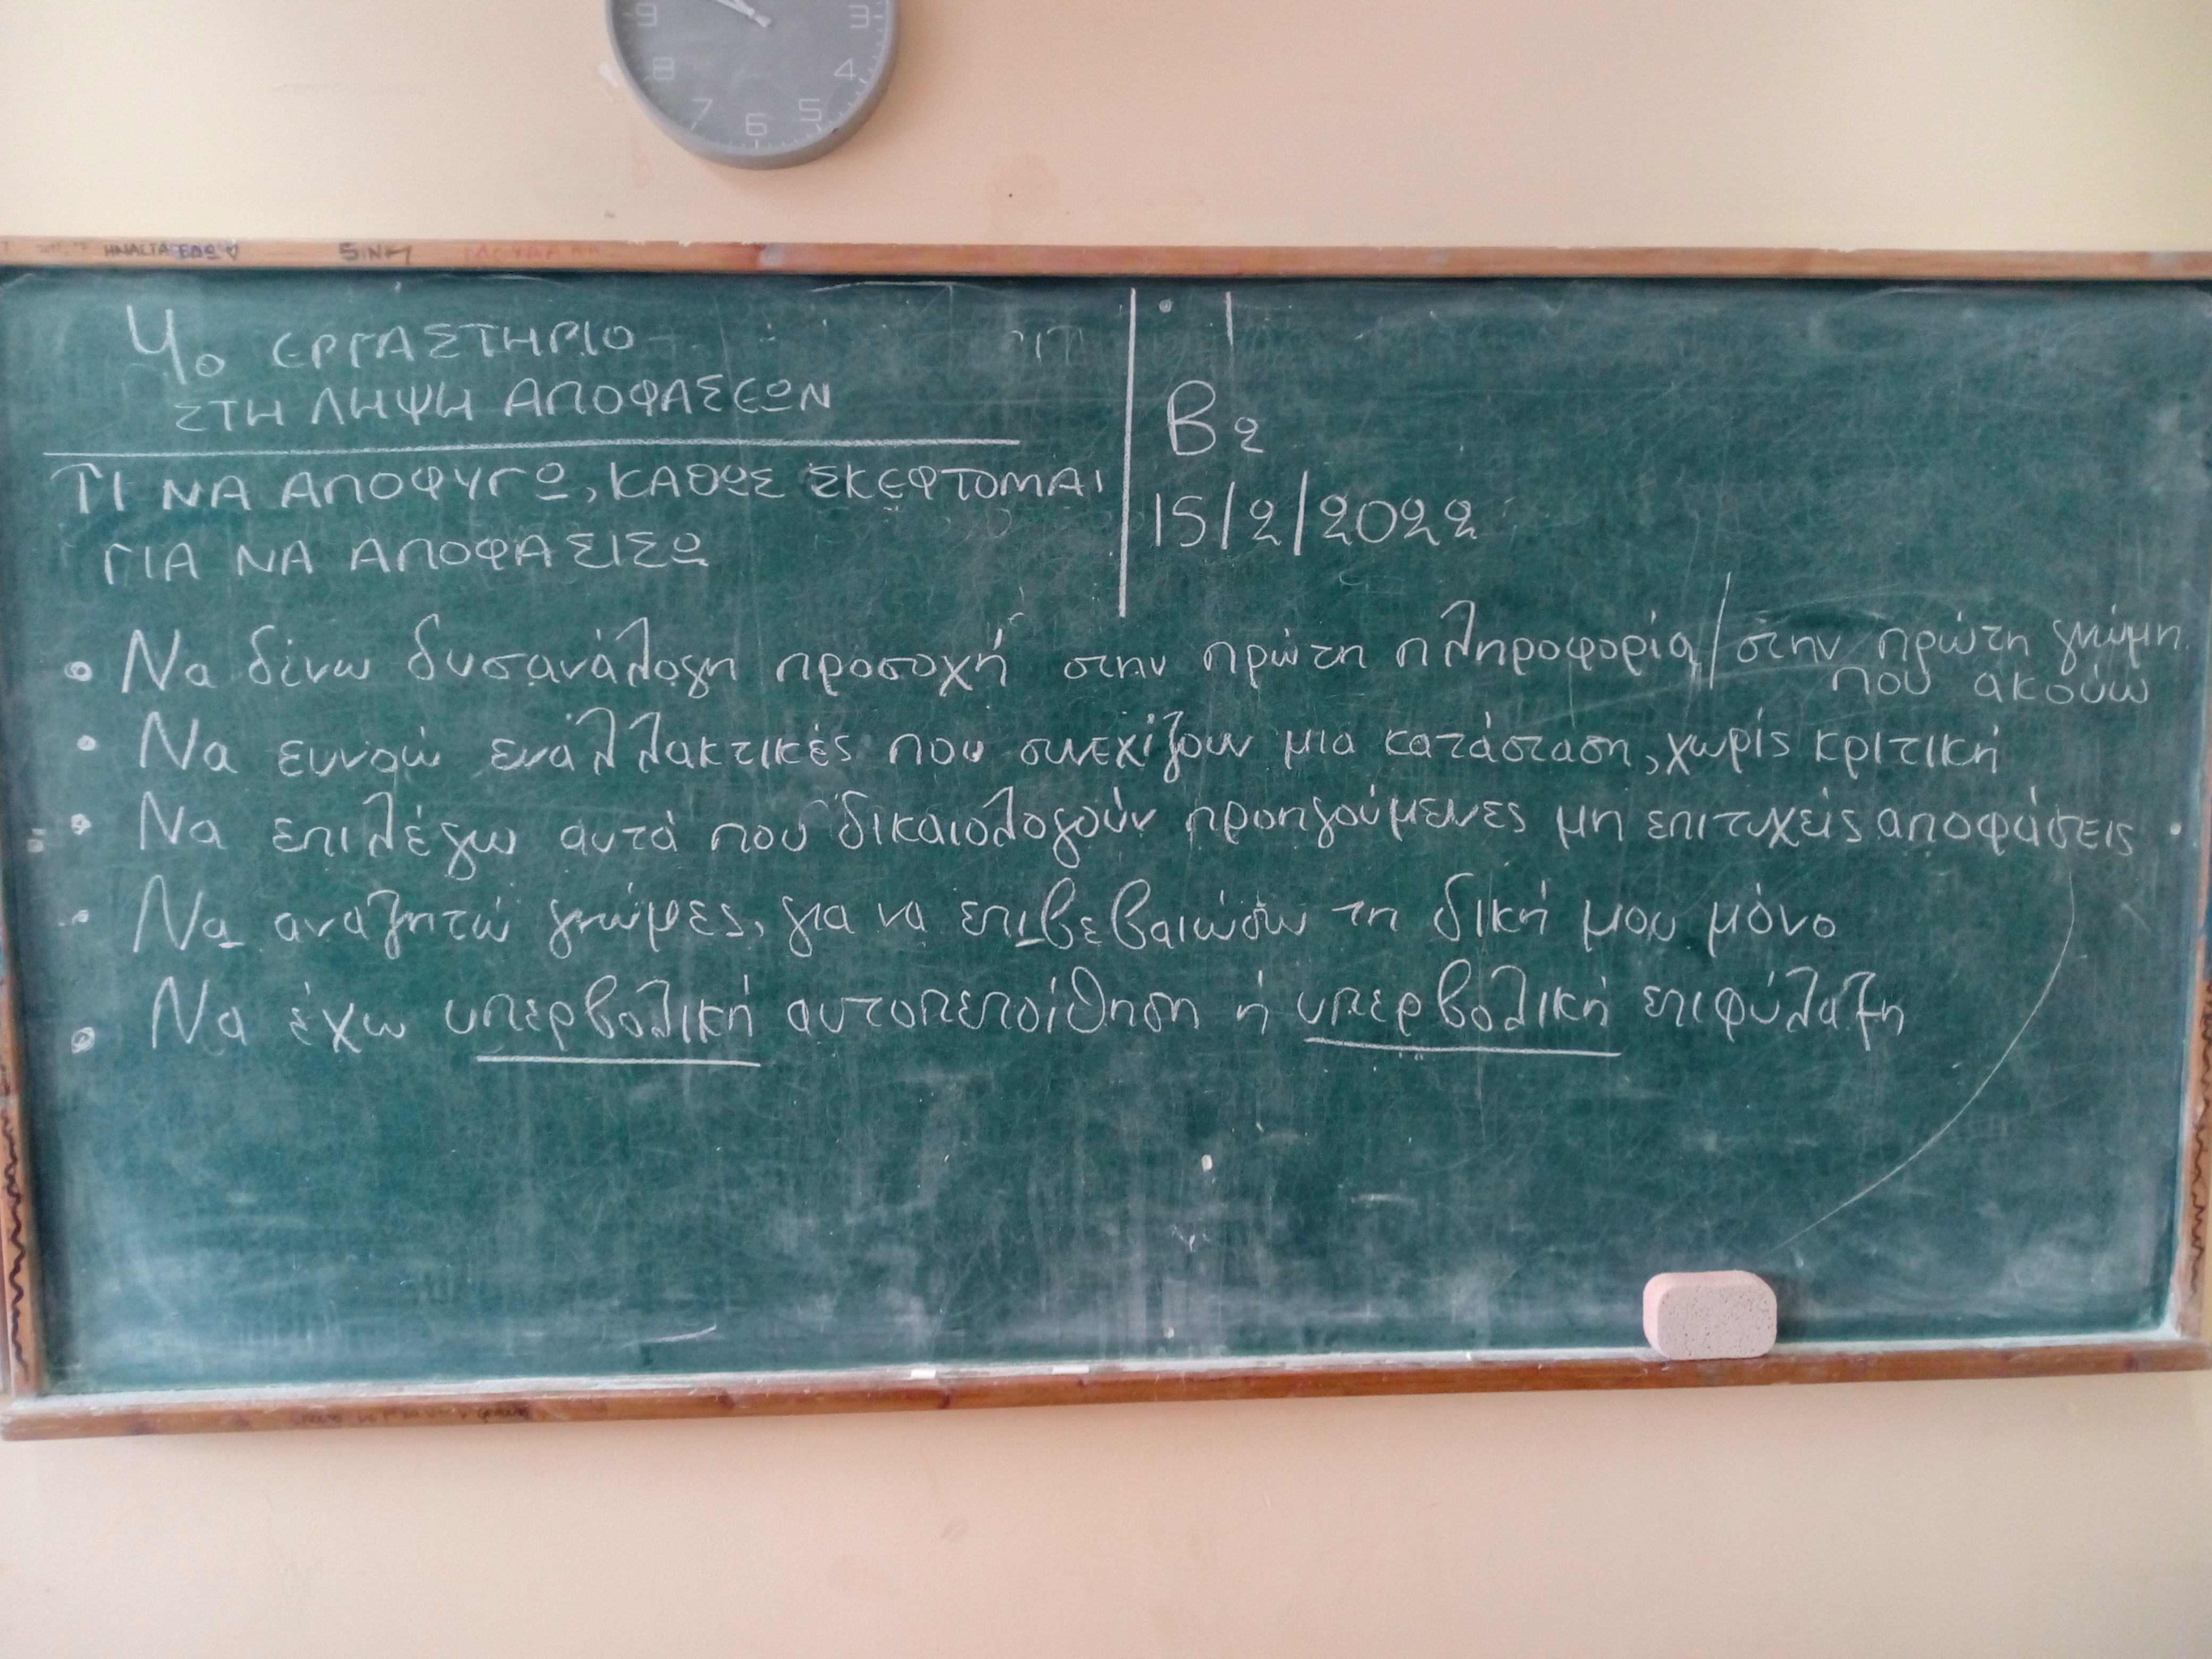 9 3
8 4
7 6 5
5IN
4ο ΕΡΓΑΣΤΗΡΙΟ
ΣΤΗ ΛΗΨΗ ΑΠΟΦΑΣΕΩΝ
ΤΙ ΝΑ ΑΠΟΦΥΓΩ, ΚΑΘΩΣ ΣΚΕΦΤΟΜΑΙ
ΓΙΑ ΝΑ ΑΠΟΦΑΣΙΣΩ
Β2
15/2/2022
• Να δίνω δυσανάλογη προσοχή στην πρώτη πληροφορία/στην πρώτη γνώμη
που ακούω
• Να ευνοώ εναλλακτικές που συνεχίζουν μια κατάσταση, χωρίς κριτική
• Να επιλέγω αυτά που δικαιολογούν προηγούμενες μη επιτυχείς αποφάσεις
• Να αναζητώ γνώμες, για να επιβεβαιώσω τη δική μου μόνο
• Να έχω υπερβολική αυτοπεποίθηση ή υπερβολική επιφύλαξη